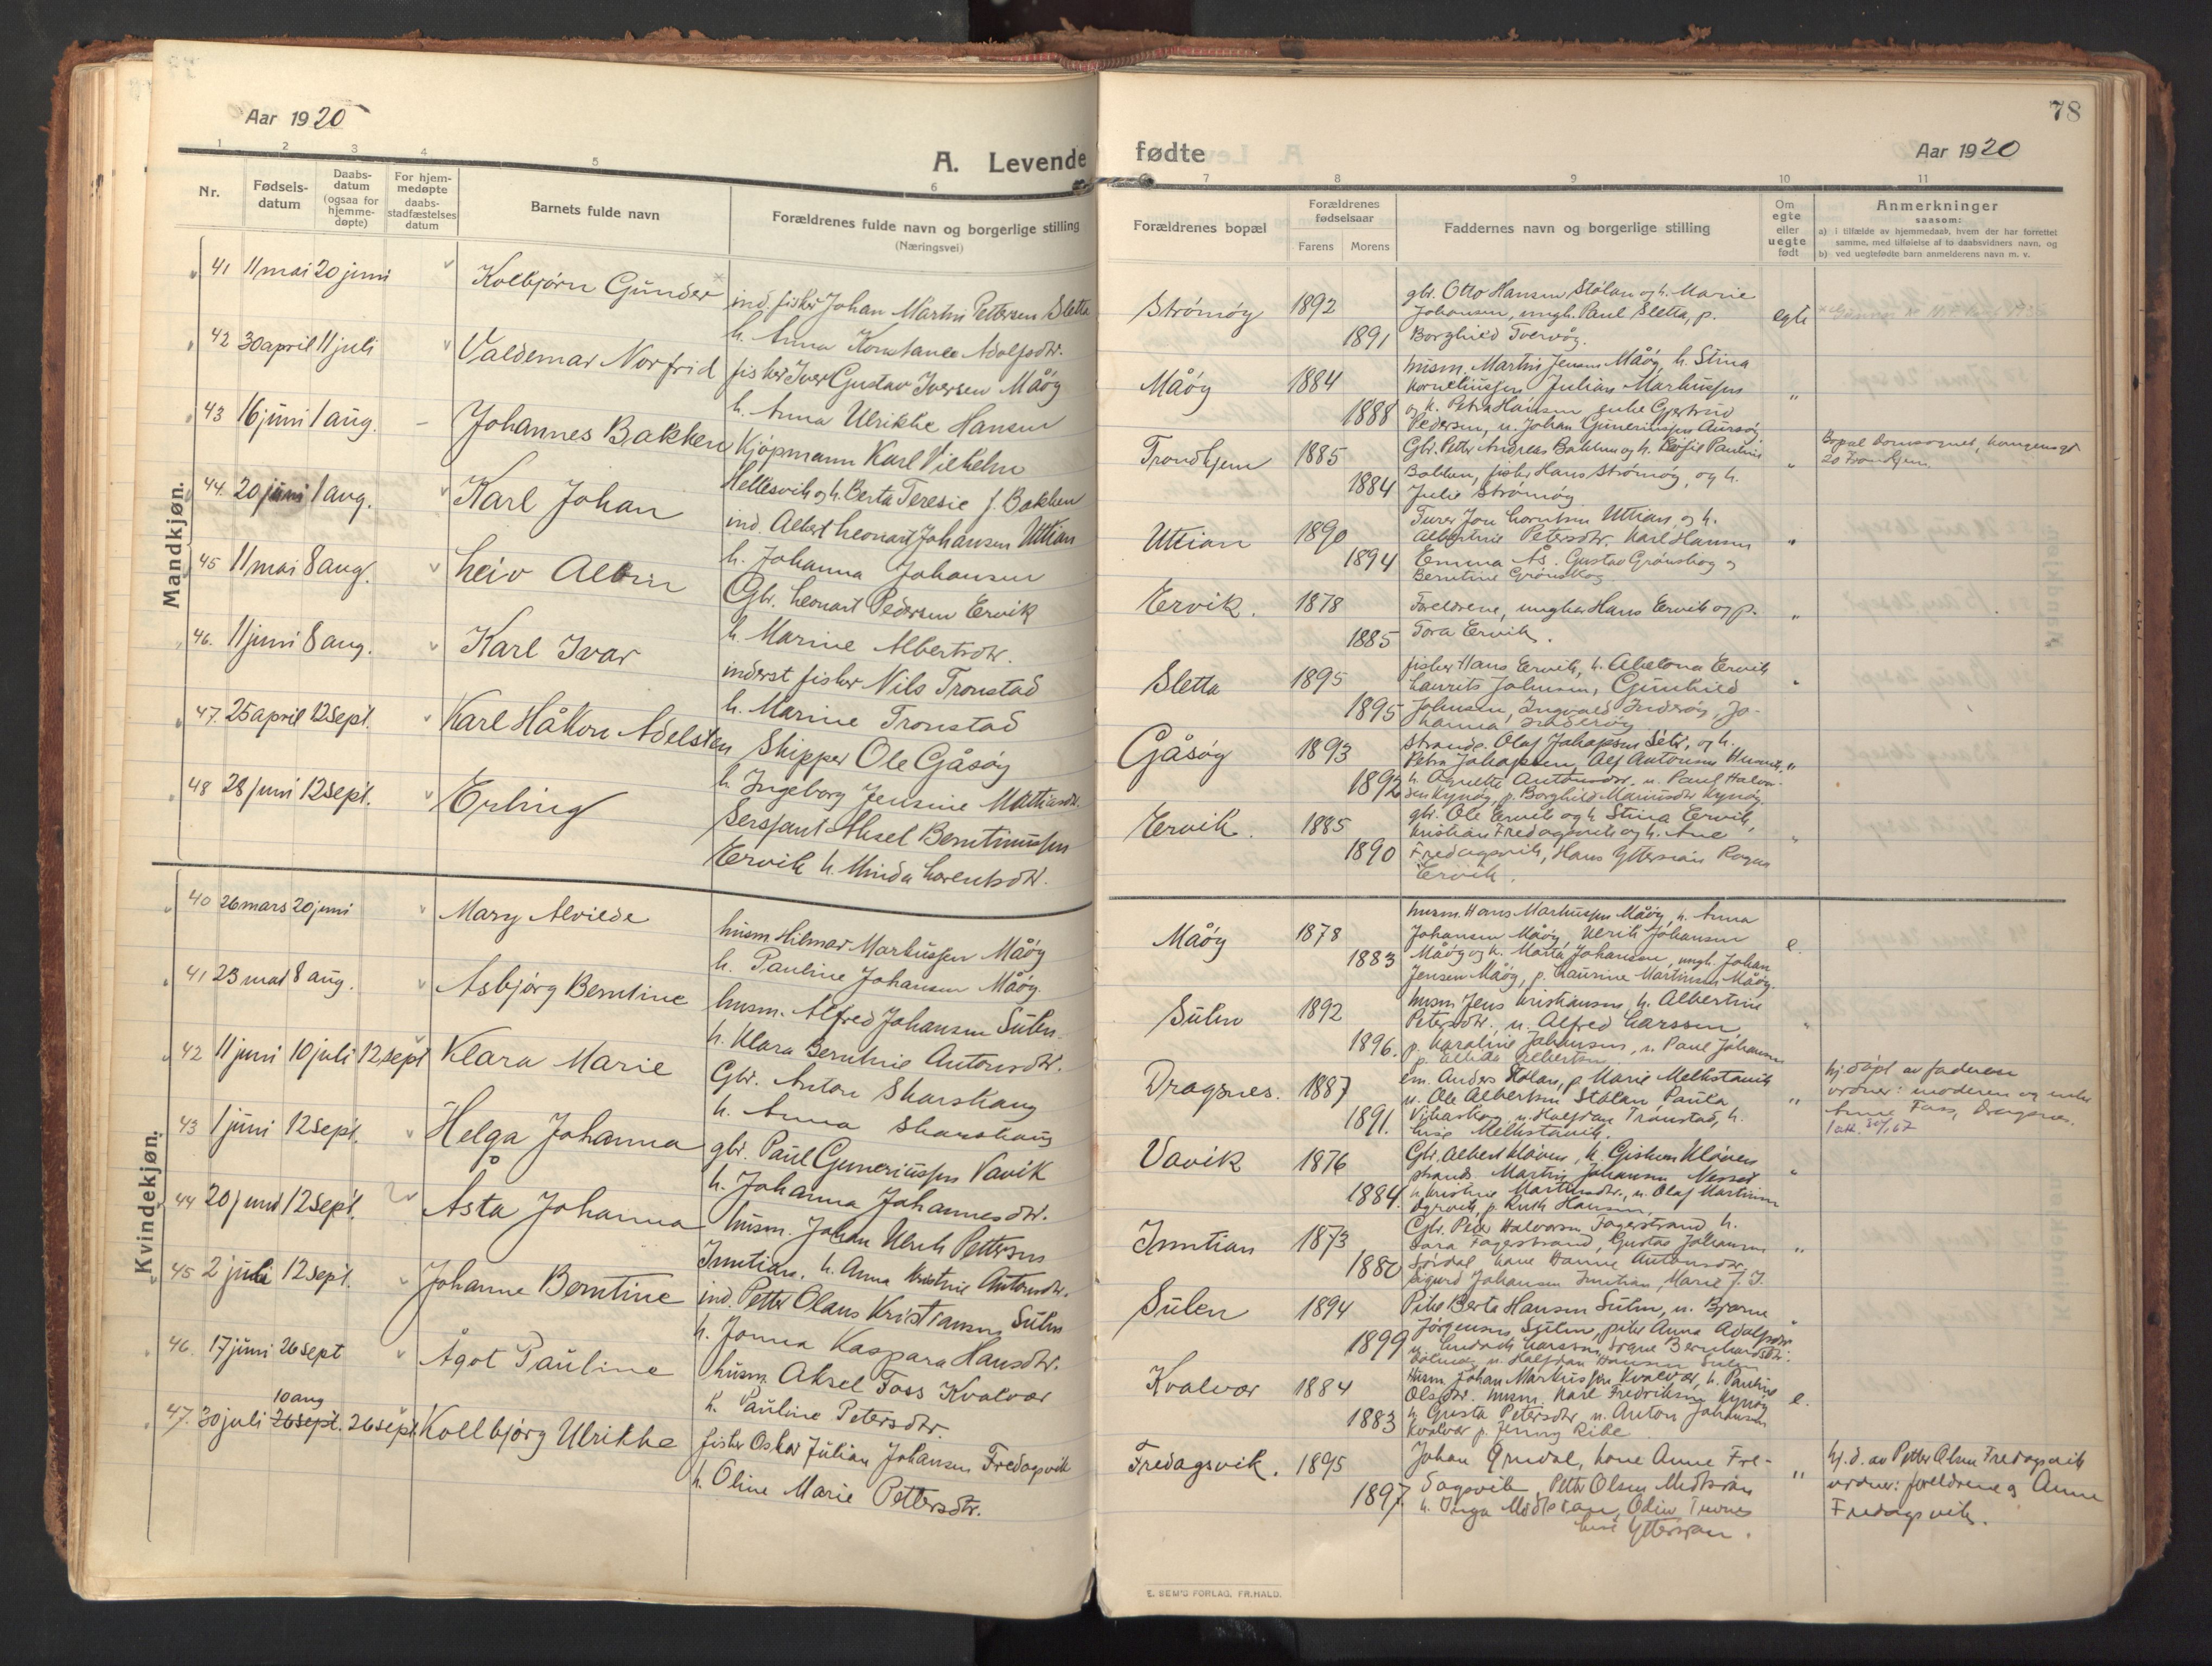 Aar 1920
A. Levende
1
2
3
4
5
6
Nr.
Fødsels-
datum
Daabs-
datum
(ogsaa for
hjemme-
døpte)
For hjem-
medøpte
daabs-
stadfæstelses
datum
Barnets fulde navn
Forældrenes fulde navn og borgerlige stilling
(Næringsvei)
Mandkjøn.
41 11 mai 20 juni Kolbjørn Gunder
ind. fisker Johan Martin Pettersen Sletta
h. Anna Konstance Adolfsdtr.
42 30 april 11 juli Valdemar Norfrid
fisker Iver Gustav Iversen Måøy
h. Anna Ulrikke Hansen
43 16 juni 1 aug. Johannes Bakken
Kjøpmann Karl Vilhelm
Hellesvik og h. Berta Teresie f. Bakken
44. 20 juni 1 aug. Karl Johan
ind. Albert Leonart Johansen Uttian
h. Johanna Johansen
45 11 mai 8 aug. Leiv Albin
Gbr. Leonart Pedersen Ervik
h. Marine Albertsdtr.
46. 11 juni 8 aug. Karl Ivar
inderst fisker Nils Tronstad
h. Marine Tronstad
47. 25 april 12 sept. Karl Håkon Adelsten
Skipper Ole Gåsøy
h. Ingeborg Jensine Mathiasdtr.
48 28 juni 12 sept. Erling
Sersjant Aksel Berntinussen
Ervik h. Minda Lorentsdtr.
Kvindekjøn.
40 26 mars 20 juni Mary Alvilde
husm. Hilmar Markussen Måøy
h. Pauline Johansen Måøy
41 23 mai 8 aug. Asbjørg Berntine
husm. Alfred Johansen Sulen
h. Klara Berntine Antonsdtr.
42 11 juni 10 juli 12 sept Klara Marie
Gbr. Anton Skarskaug
h. Anna Skarskaug
43 1 juni 12 sept. Helga Johanna
gbr. Paul Guneriussen Vavik
h. Johanna Johannesdtr.
44 20 juni 12 sept. Åsta Johanna
husm. Johan Ulrik Pettersen
Inntian, h. Anna Kristine Antonsdtr.
45 2 juli 12 sept. Johanne Berntine
ind. Petter Olaus Kristiansen Sulen
h. Jonna Kaspara Hansdtr.
46. 17 juni 26 sept Ågot Pauline
husm. Aksel Foss Kvalvær
h. Pauline Petersdtr.
10 aug
47. 30 juli 26 sept. 26 sept. Kollbjørg Ulrikke
fisker Oskar Julian Johansen Fredagsvik
h. Oline Marie Pettersdtr.
78
fødte
Aar 1920
7
8
9
10
11
Forældrenes bopæl
Forældrenes
fødselsaar
Farens Morens
Faddernes navn og borgerlige stilling
Om
egte
eller
uegte
født
Anmerkninger
saasom:
a) i tilfælde av hjemmedaab, hvem der har forrettet
samme, med tilføielse af to daabsvidners navn, og
b) ved uegtefødte barn anmelderens navn m. v.
Strømøy 1892
1891
gbr. Otto Hansen Stølan og h. Marie
Johansen, ungk. Paul Sletta, p.
Borghild Tverøy.
egte
Måøy 1884
1888
husm. Martin Jensen Måøy, h. Stina
Korneliussen Julian Markussen
og h. Petra Hansen, enke Gjertrud
Pedersen, u. Johan Guneriussen Aursøy
"
Trondhjem 1885
1884
Gbr. Petter Andreas Bakken og h. Pauline
Bakken, fisker Hans Strømøy, og h.
Julie Strømøy
"
Bopæl Domsognet,
Trondhjem.
Uttian 1890
1894
Jon Lorntsen Uttian og h.
Albertine Petersdtr. Karl Hansen
Emma Ås. Gustav Grønskog og
Berntine Grønskog
"
Ervik. 1878
1885
Foreldrene, ungkar Hans Ervik og p.
Tora Ervik.
"
Sletta 1895
1895
fisker Hans Ervik, h. Abelona Ervik
Laurits Johnsen, Gunhild
Johnsen, Ingvald Inderøy, Jo-
hanna Inderøy
"
Gåsøy 1893
1892
strands. Olaf Johansen Sétr, og h.
Petra Johansen, Alf Antonsen
h. Agnette Antonsdtr. u. Paul Halvor-
sen Kynøy, p. Borghild Mariusdtr Kynøy.
"
Ervik. 1885
1890
gbr. Ole Ervik og h. Stina Ervik,
Kristian Fredagsvik og h. Ane
Fredagsvik, Hans Yttersian Ragna
Ervik.
"
Måøy 1878
1883
husm. Hans Markussen Måøy, h. Anna
Johansen Måøy, Ulrik Johansen
Måøy og h. Marta Johansen, ungk. Johan
Jensen Måøy, p. Laurine Martinsen Måøy.
e.
Sulen 1892
1896.
husm. Jens Kristiansen h. Albertine
Petersdtr., u. Alfred Larssen
p. Karoline Johansen, u. Paul Johansen
p. Albertsen
"
Dragsnes. 1887
1891.
em. Anders Stølan, p. Marie Melkstavik
u. Ole Albertsen Stølan Paula
Vikaskog u. Halfdan Tronstad, h.
Lise Melkstavik.
"
hj. døpt av faderen
vidner: moderen og enke
Anne Foss, Dragsnes.
Vavik 1876
1884.
Gbr. Albert Kløven, h. Gisken Kløven
strands. Martin Johansen Nesset
h. Kristine Martinsdtr., u. Olaf Martinsen
p. Ruth Hansen.
"
Inntian 1873
1880
Gbr. Peder Halvorsen Fagerstrand, h.
Sara Fagerstrand, Gustav Johansen
Sørdal kone Hanne Antonsdtr,
Sigurd Johansen Inntian, Marie J. I.
"
Sulen 1894
1899
Pike Berta Hansen Sulen, u. Bjarne
Jørgensen Sulen, pike Anna Adolfsdtr
u. Larssen Signe Bernhardsdtr.
u. Halfdan Hansen Sulen
Kvalvær 1884
1883
Husm. Johan Markussen Kvalvær, h. Pauline
Olsdtr. husm. Karl Fredriksen Kynøy
h. Gusta Petersdtr u. Anton Johansen
Kvalvær p. Jenny Ribe
e.
Fredagsvik. 1895
1897.
Johan Grudal, kone Anne Fre-
dagsvik, Petter Olsen Midtsian
h. Inga Midtsian, Odin Turnes
Lise Yttersian.
"
hj. d. av Petter Olsen Fredagsvik
vidner: foreldrene og Anne
Fredagsvik.
E. SEM'S FORLAG, FR.HALD.